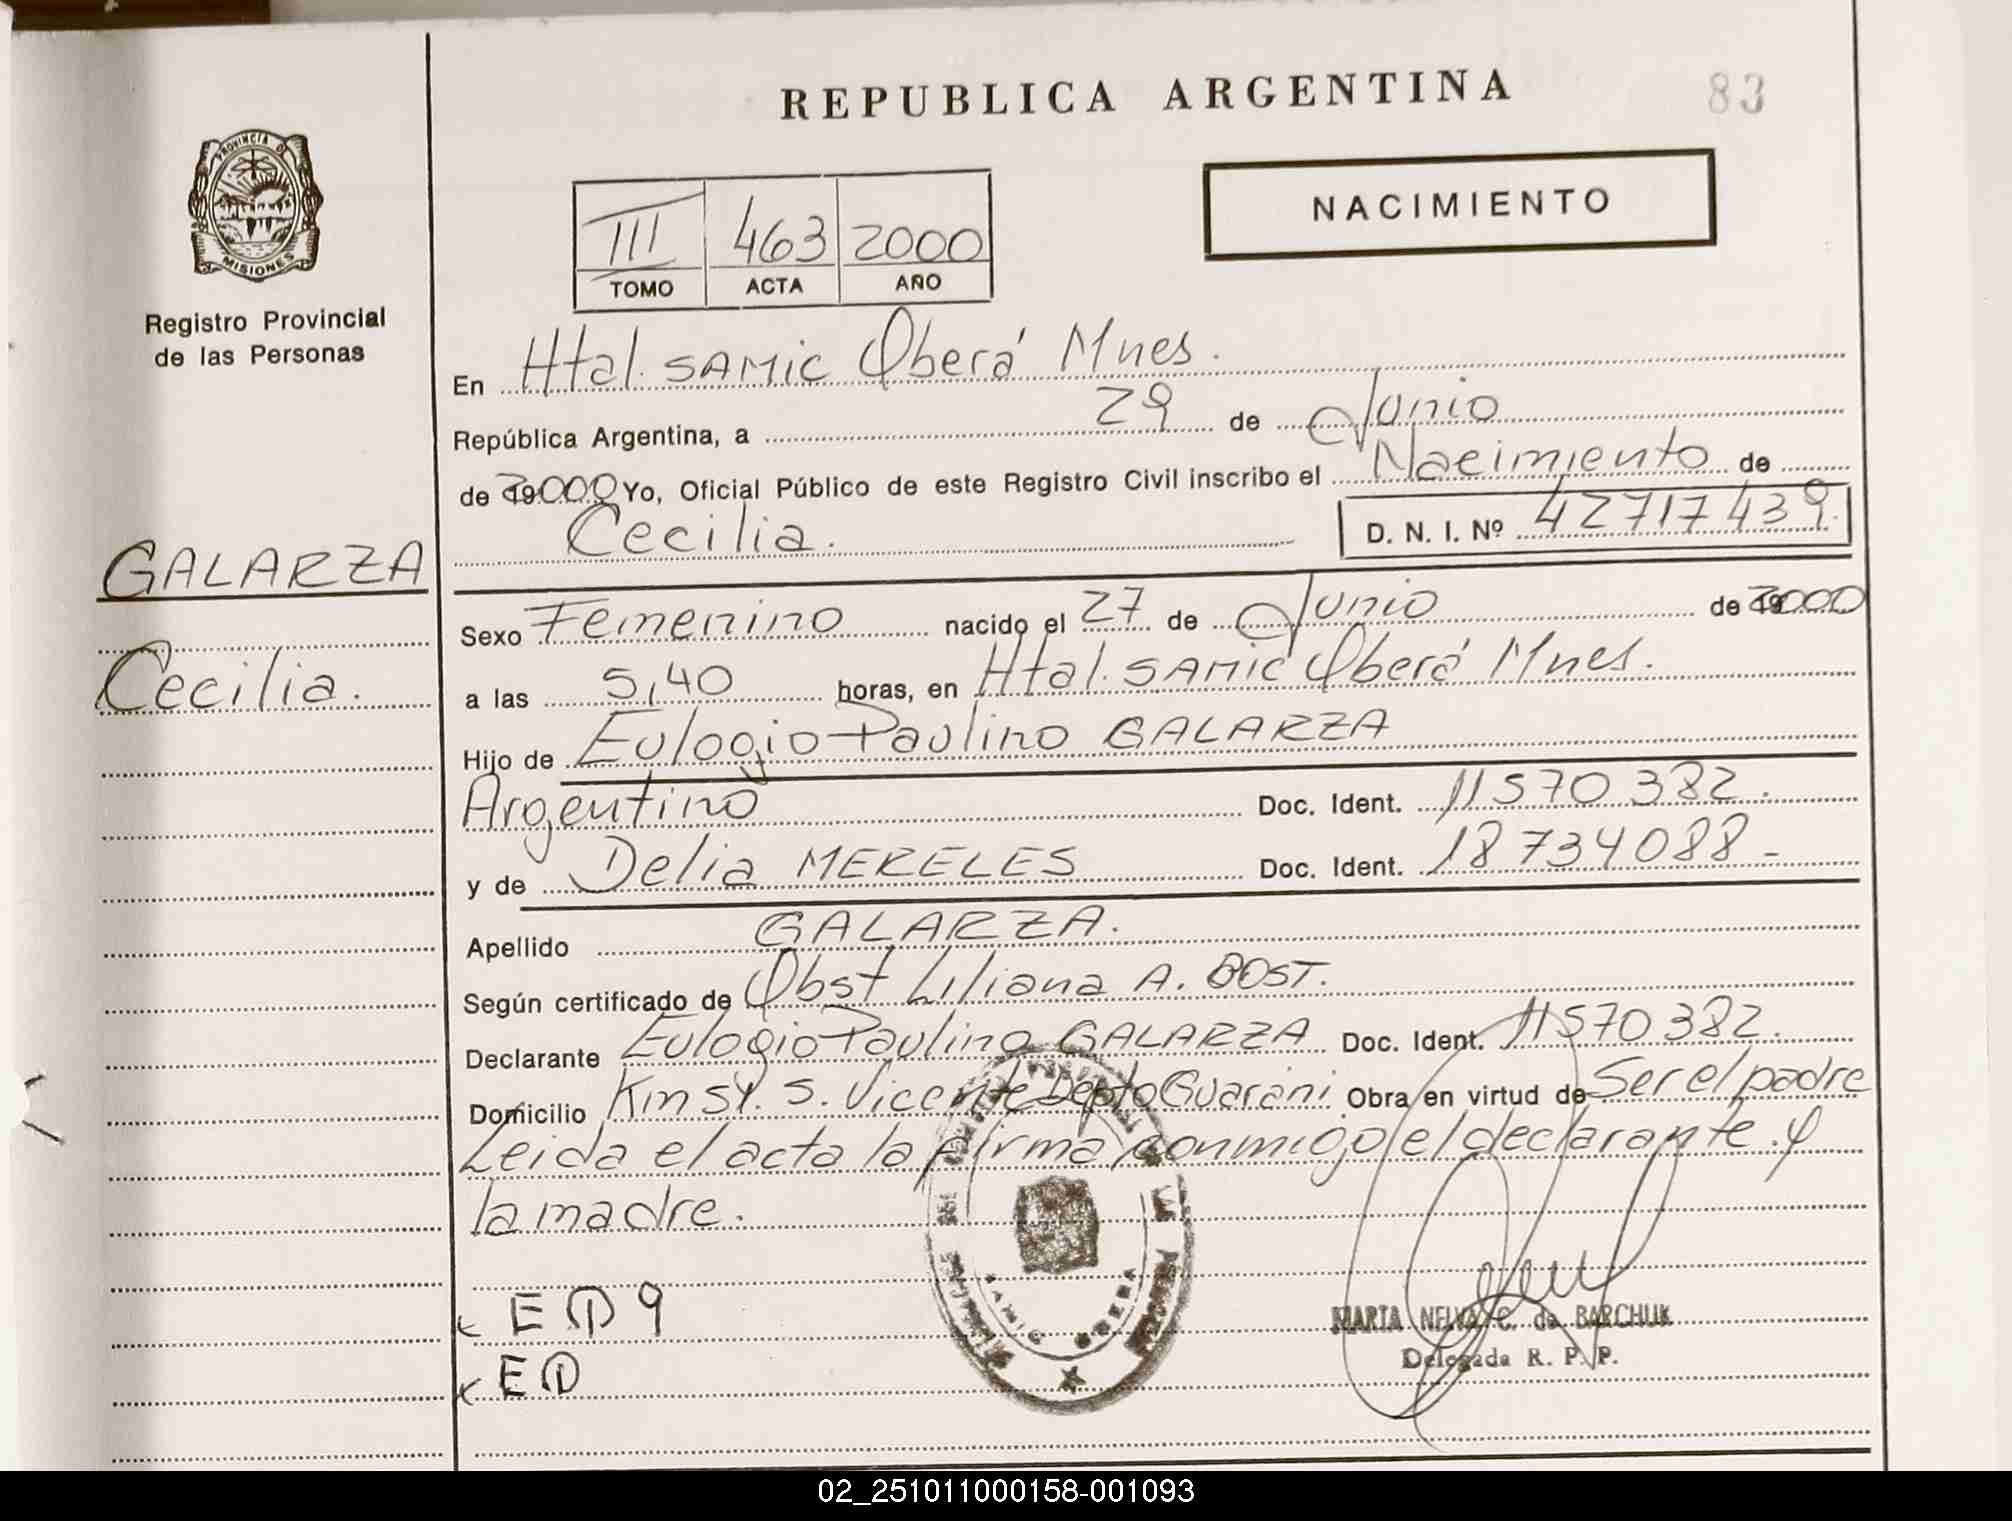 REPUBLICA ARGENTINA
83
PROVINCIA DE MISIONES
Registro Provincial
de las Personas
NACIMIENTO
III 463 2000
TOMO ACTA AÑO
En Htal. SAMIC Oberá Mnes.
República Argentina, a 29 de Junio
de 2000 Yo, Oficial Público de este Registro Civil inscribo el Nacimiento de
Cecilia. D. N. I. Nº 42717439.
GALARZA
Cecilia.
Sexo Femenino nacido el 27 de Junio de 2000
a las 5,40 horas, en Htal. SAMIC Oberá Mnes.
Hijo de Eulogio Paulino GALARZA
Argentino Doc. Ident. 11570382.
y de Delia MERELES Doc. Ident. 18734088-
Apellido GALARZA.
Según certificado de Obst Liliana A. BOST.
Declarante Eulogio Paulino GALARZA Doc. Ident. 11570382.
Domicilio Km 51. S. Vicente Depto Guaraní Obra en virtud de Ser el padre
Leida el acta la firma conmigo el declarante y
la madre.
E D 9
E D
SAMIC OBERA
MARIA NELVA C. de BARCHUK
Delegada R. P. P.
02_251011000158-001093